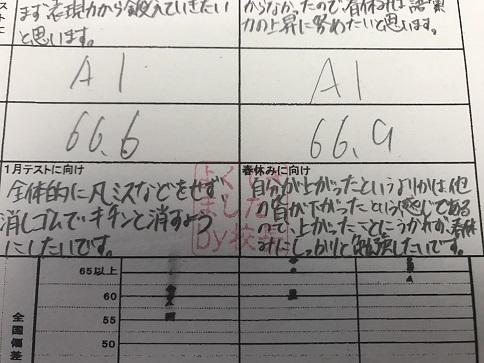 まず表現力から鍛えていきたい
と思います。
からなかったので春休みは語彙
力の上昇に努めたいと思います。
A1
A1
66.6
66.9
1月テストに向け
春休みに向け
全体的に凡ミスなどをせず
消しゴムでキチンと消すよう
にしたいです。
自分が上がったというよりかは他
の皆が下がったという感じである
ので、上がったことにうかれず春休
みにしっかりと勉強したいです。
よく
ました
by校
65以上
60
55
50
全国偏差